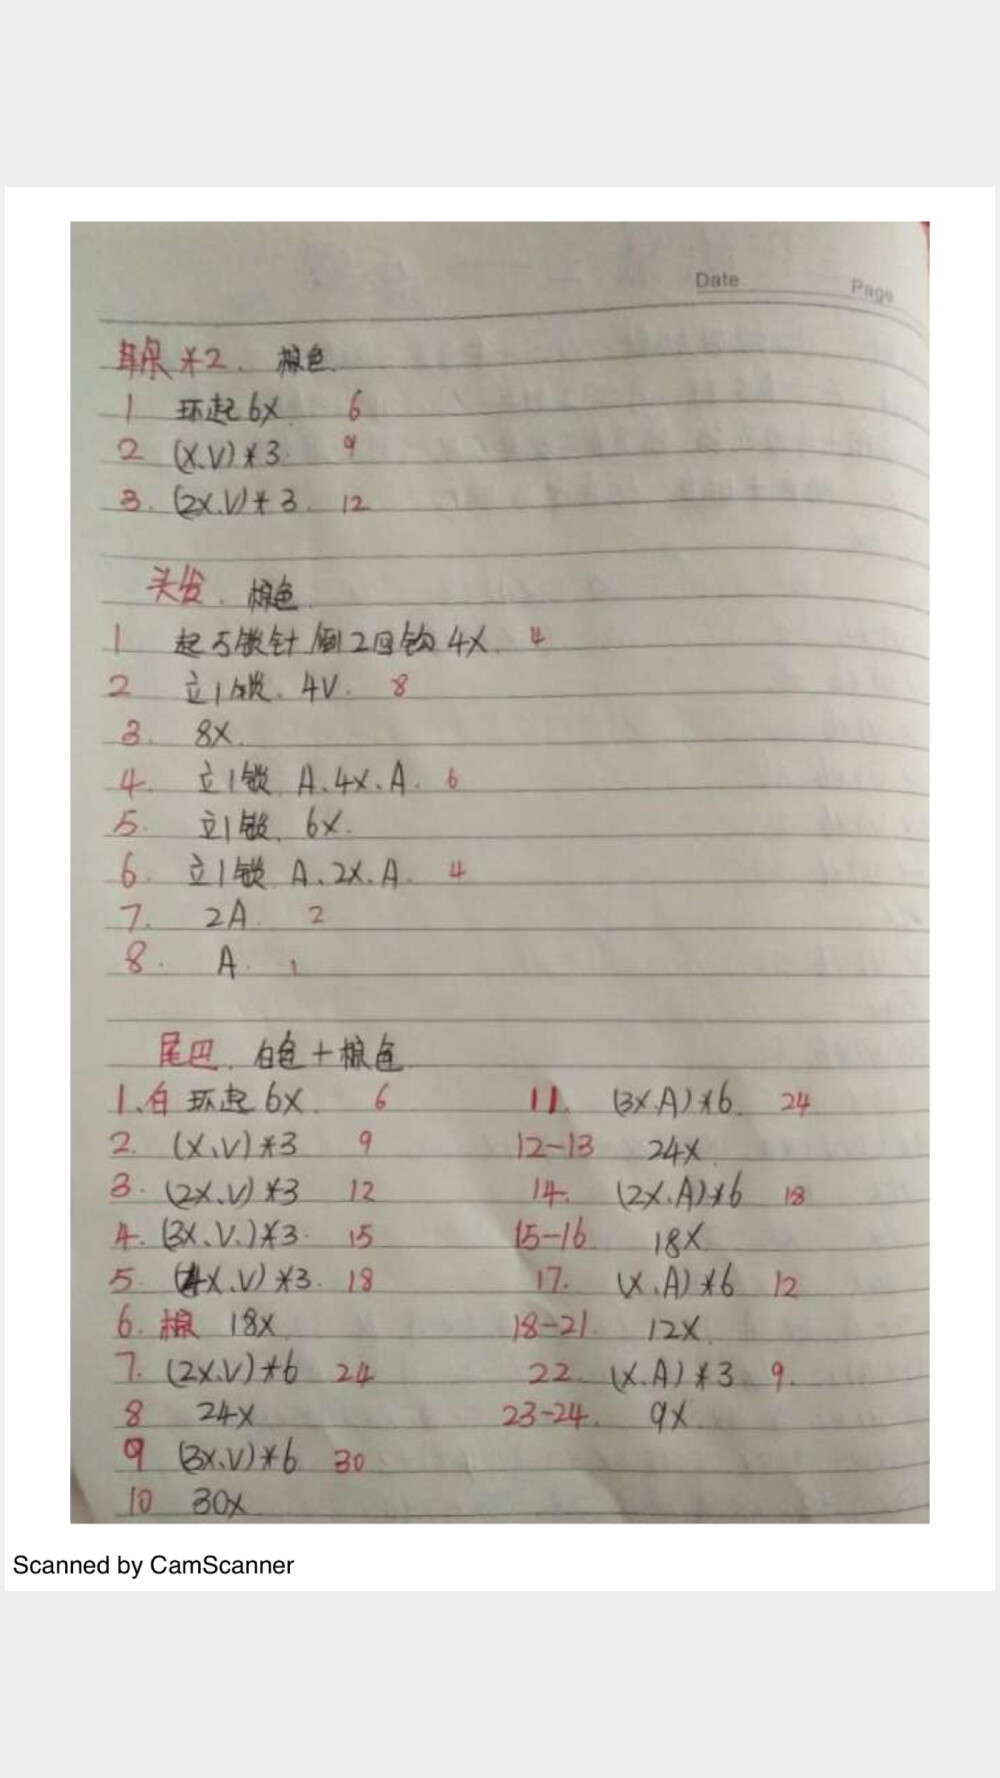 Date Page
耳朵*2. 棕色.
1 环起6X 6
2 (X.V)*3. 9
3. (2X.V)*3. 12
头发. 棕色.
1 起5锁针 倒2回钩 4X. 4
2 立1锁. 4V. 8
3. 8X.
4. 立1锁 A.4X.A. 6
5. 立1锁. 6X.
6. 立1锁 A.2X.A. 4
7. 2A. 2
8. A. 1
尾巴. 白色+棕色
1.白 环起6X. 6
2. (X.V)*3 9
3. (2X.V)*3 12
4. (3X.V.)*3. 15
5. (4X.V)*3. 18
6. 棕 18X
7. (2X.V)*6 24
8 24X
9 (3X.V)*6 30
10 30X
11. (3X.A)*6. 24
12-13 24X.
14. (2X.A)*6 18
15-16 18X
17. (X.A)*6 12
18-21. 12X.
22. (X.A)*3 9.
23-24. 9X.
Scanned by CamScanner